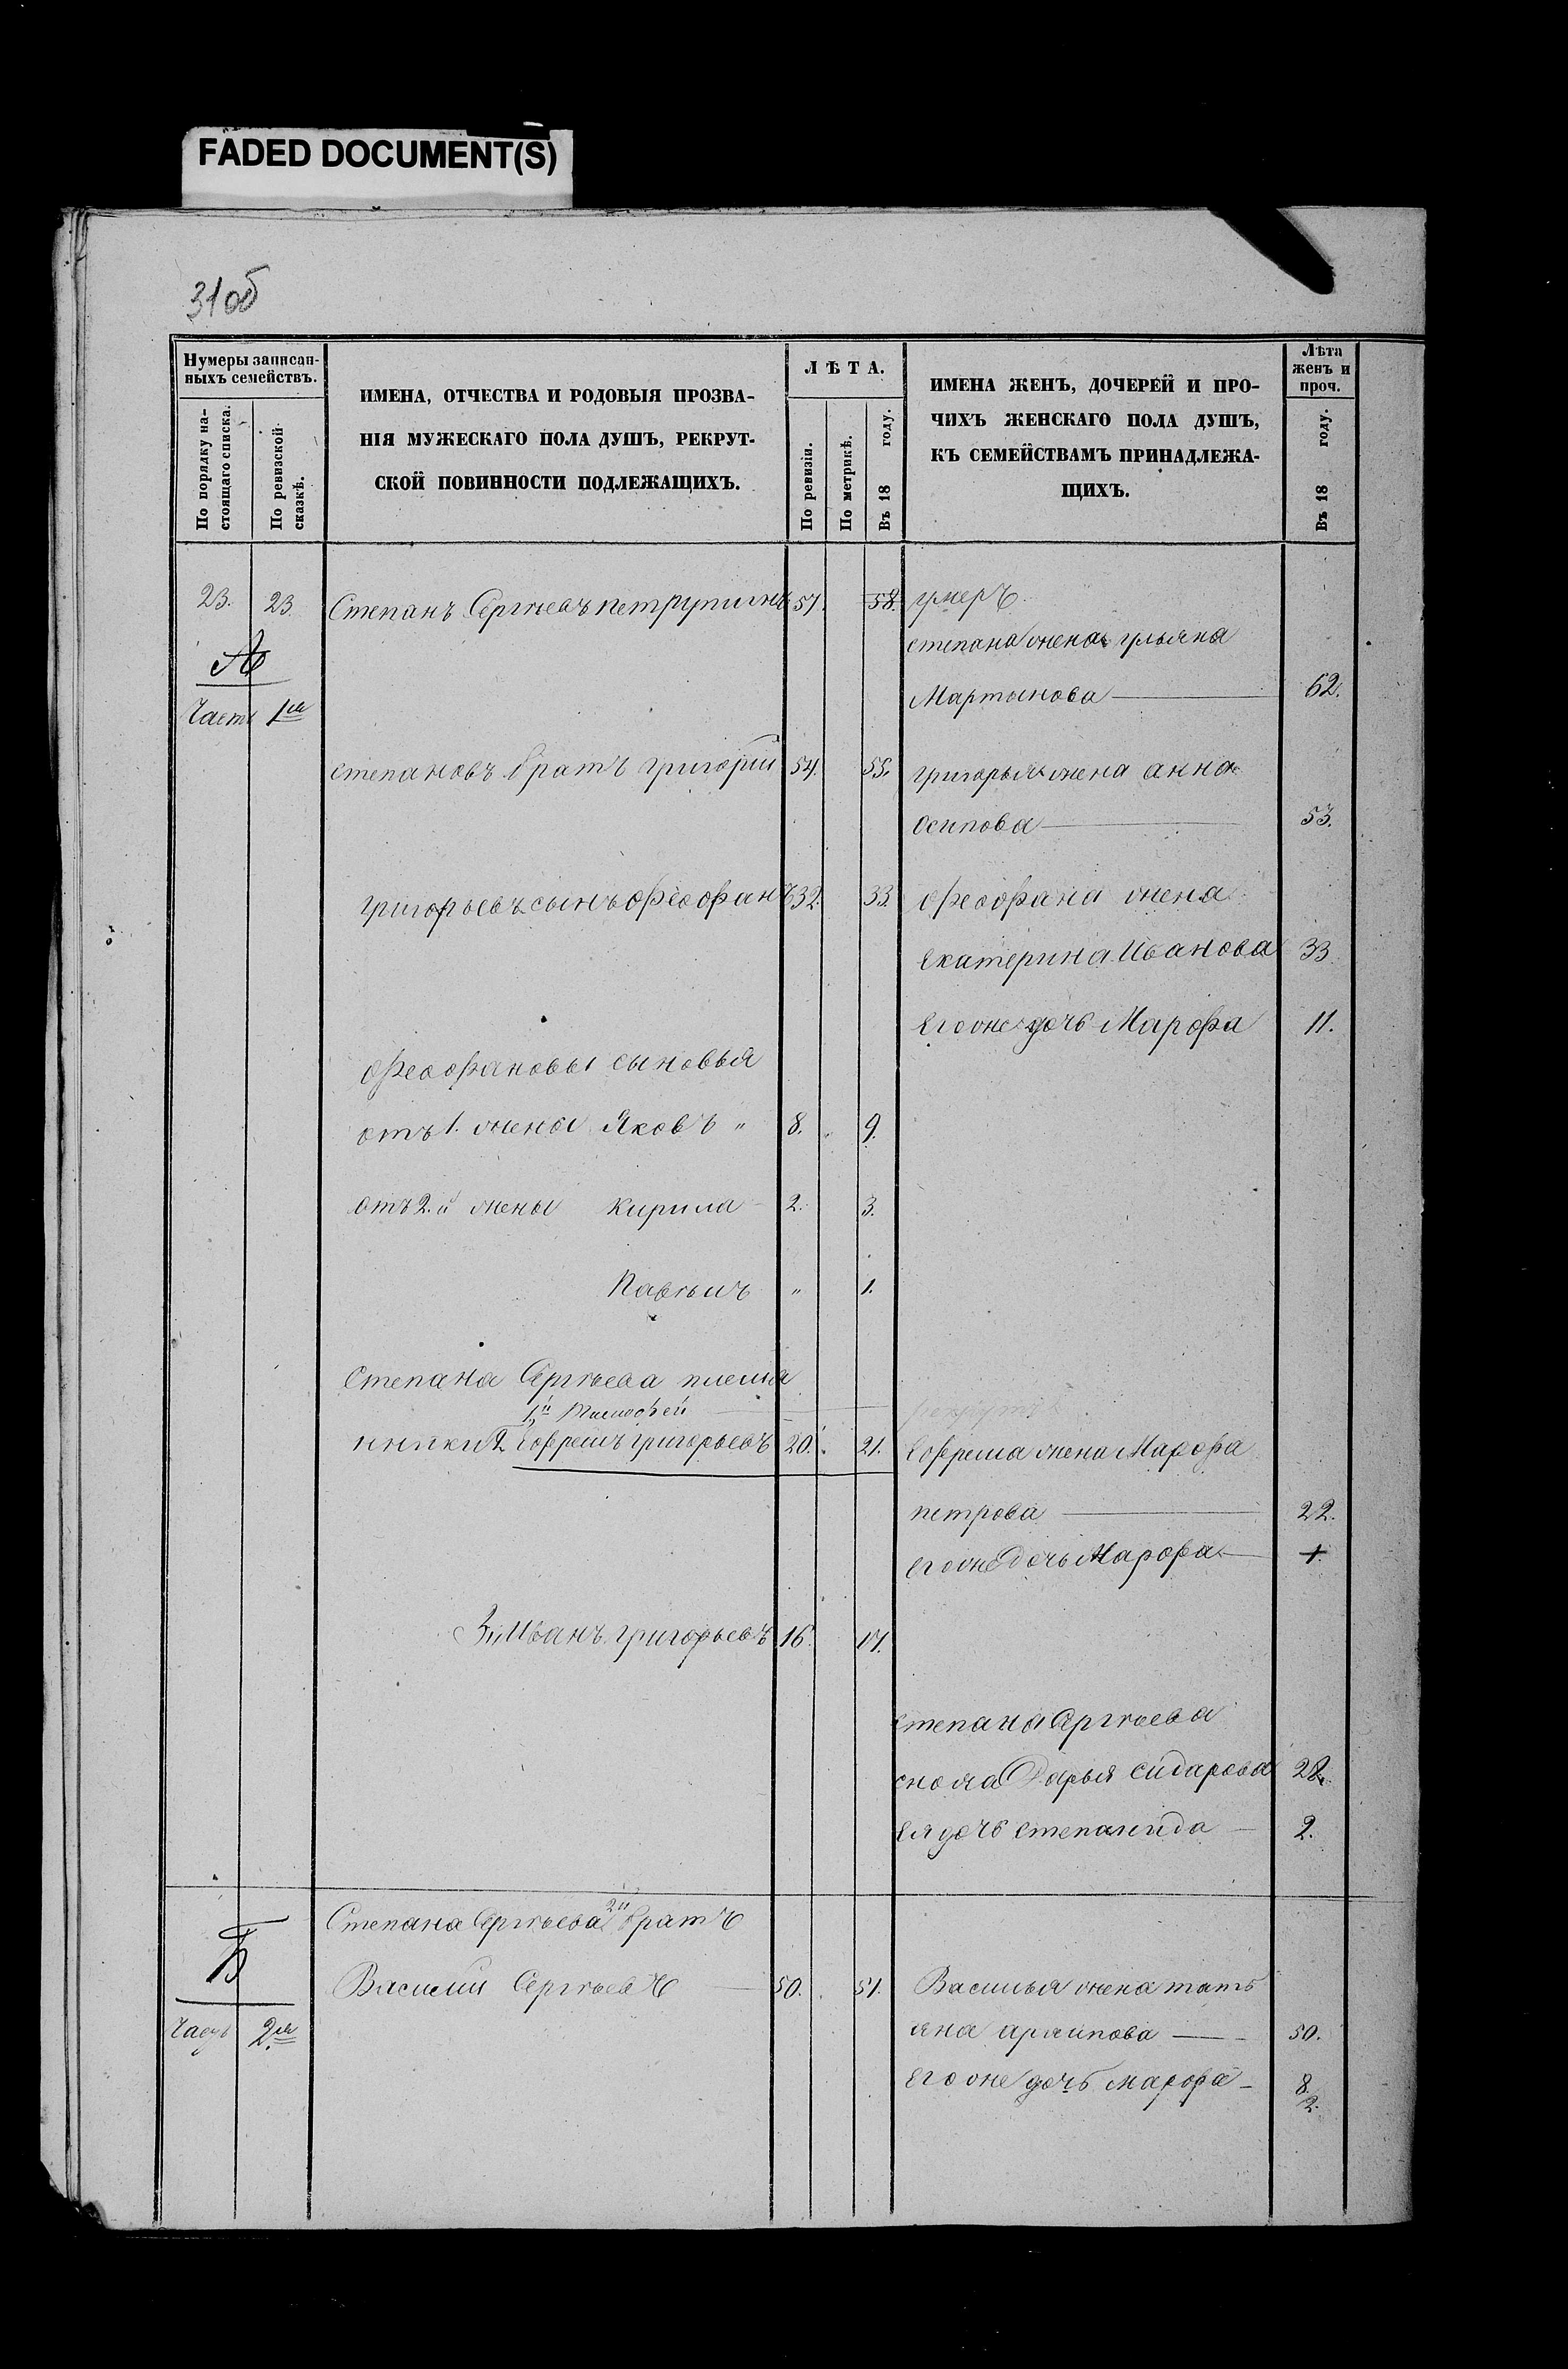 FADED DOCUMENT(S)
31об
Нумеры записан-
ныхъ семействъ.
По порядку на-
стоящаго списка.
По ревизской
сказкѣ.
ИМЕНА, ОТЧЕСТВА И РОДОВЫЯ ПРОЗВА-
НІЯ МУЖЕСКАГО ПОЛА ДУШЪ, РЕКРУТ-
СКОЙ ПОВИННОСТИ ПОДЛЕЖАЩИХЪ.
ЛѢТА.
По ревизіи.
По метрикѣ.
Въ 18 году.
ИМЕНА ЖЕНЪ, ДОЧЕРЕЙ И ПРО-
ЧИХЪ ЖЕНСКАГО ПОЛА ДУШЪ,
КЪ СЕМЕЙСТВАМЪ ПРИНАДЛЕЖА-
ЩИХЪ.
Лѣта
женъ и
проч.
Въ 18 году.
23. 23 Степанъ Сергѣевъ 57. 58. умеръ
А степана жена ульяна
Часть 1я Мартынова 62.
степановъ братъ григорій 54. 55. григорья жена анна
Осипова 53.
григорьевъ сынъ Феофанъ 32. 33. Феофана жена
екатерина Иванова 33
Его же дочь Марфа 11.
Феофановы сыновья
отъ 1. жены Яковъ " 8. 9.
отъ 2.й жены Кирила 2. 3.
" 1.
Степана Сергѣева племя
1й Тимофей
нники 2 Ефремъ григорьевъ 20. 21. Ефрема жена Марфа
петрова 22.
его же дочь Марфа 1.
3й Иванъ григорьевъ 16. 17.
степана Сергѣева
сноха Дарья сидарова 28.
Ея дочь степанида 2.
Степана Сергѣева 2й братъ
Б Василій Сергѣевъ 50. 51. Василья жена тать
Часть 2я яна архипова 50.
Его же дочь марфа 8.
2.